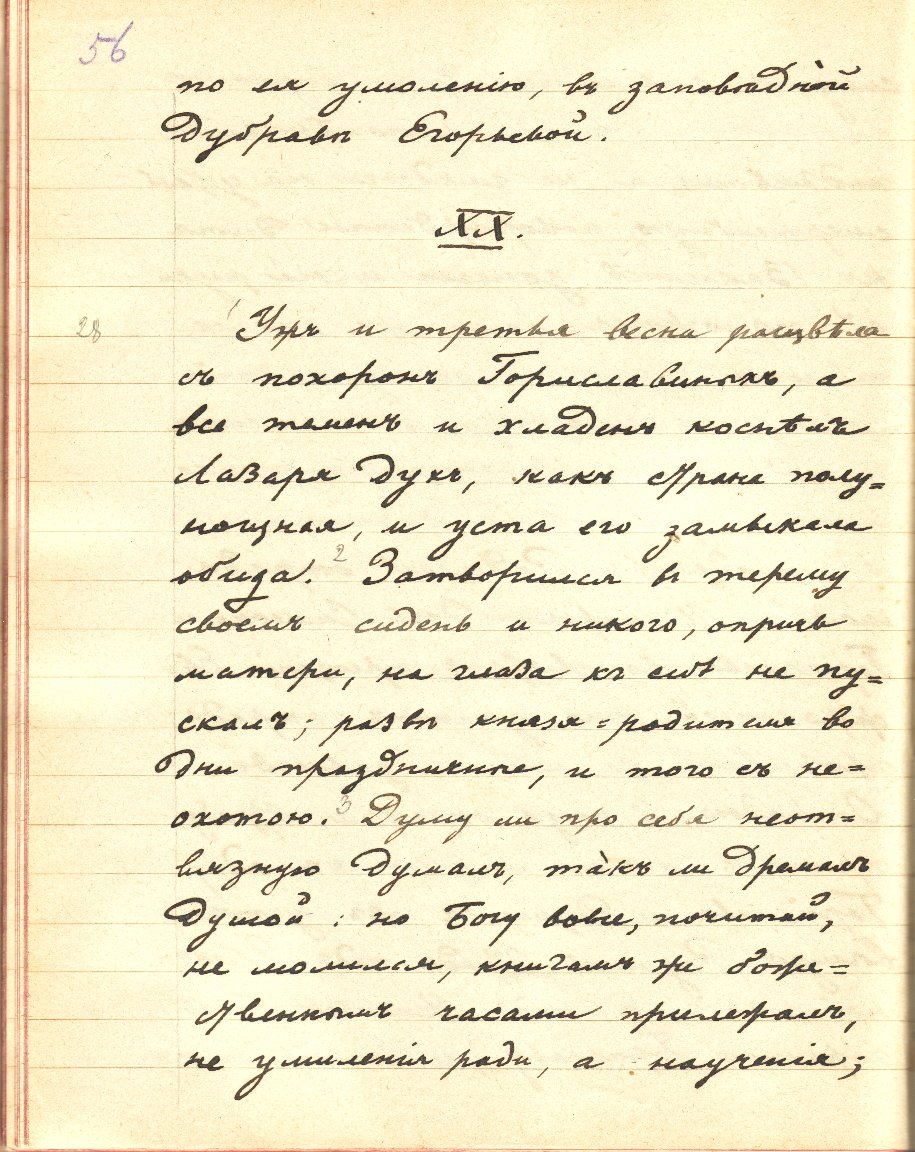 56
по ея умоленію, въ заповѣдной
Дубравѣ Егорьевой.
XX.
28
Ужъ и третья весна расцвѣла
съ похоронъ Гориславиныхъ, а
все теменъ и хладенъ коснѣлъ
Лазаря духъ, какъ страна полу=
нощная, и уста его замыкала
обида. 2 Затворился въ терему
своемъ сидень и никого, опричь
матери, на глаза къ себѣ не пу=
скалъ; развѣ князя=родителя во
дни праздничные, и того съ не=
охотою. 3 Думу ли про себя неот=
вязную думалъ, та̀къ ли дремалъ
душой: но Богу вовсе, почитай,
не молился, книгамъ же боже=
ственнымъ часами прилежалъ,
не умиленія ради, а наученія;